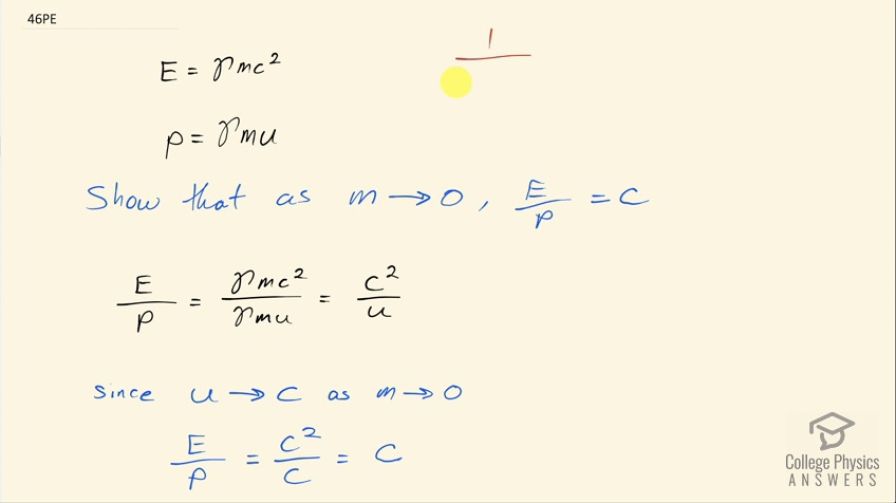 46PE
1
E = γmc²
p = γmu
Show that as m → 0, E/p = c
E/p = γmc²/γmu = c²/u
since u → c as m → 0
E/p = c²/c = c
College Physics
ANSWERS